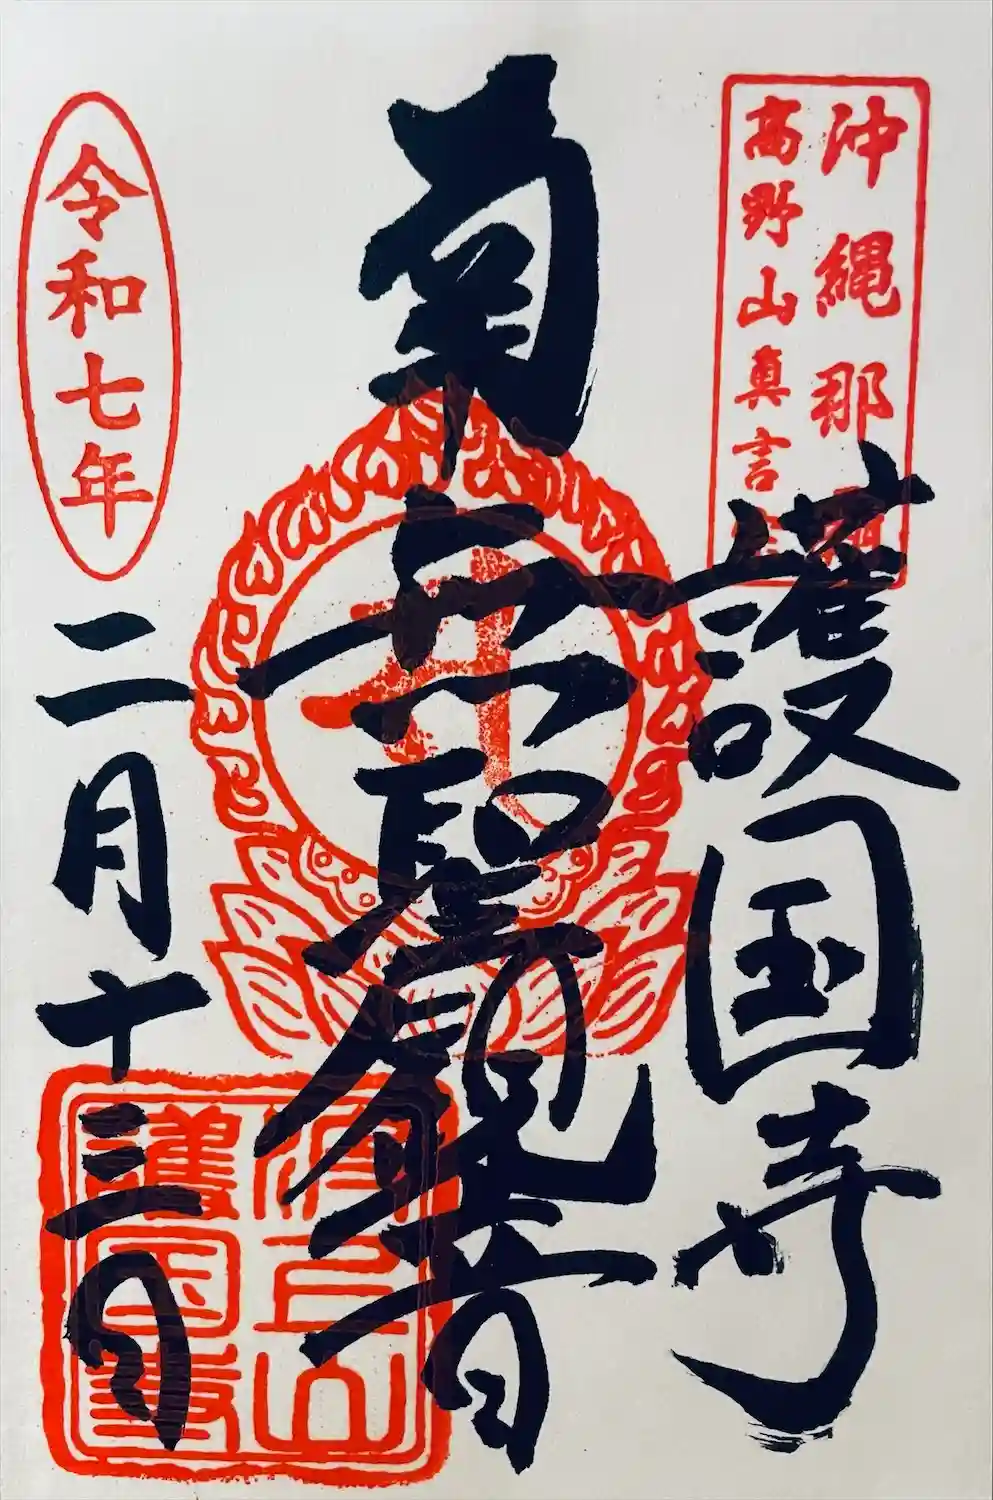 沖縄那覇
高野山真言宗
護国寺
南無聖観音
令和七年
二月十三日
波上山
護国寺